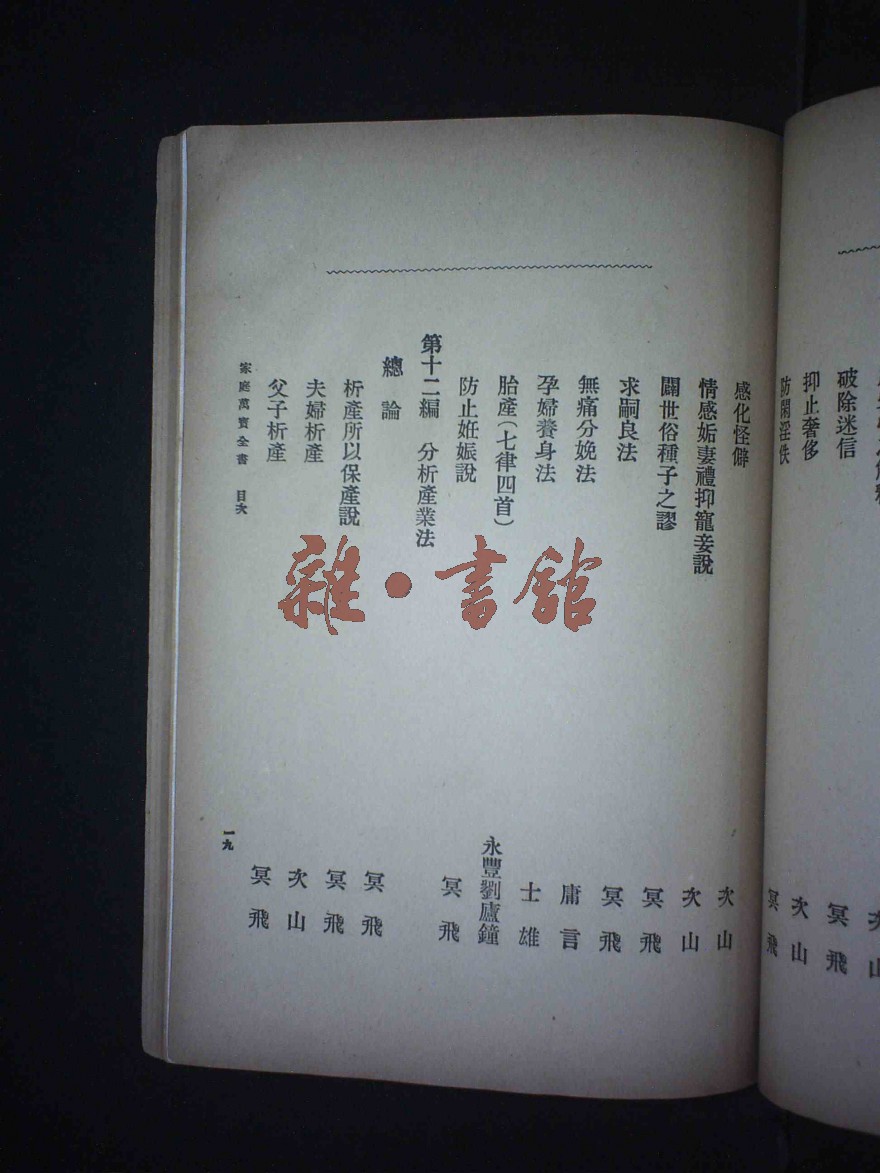 破除迷信 冥飛
抑止奢侈 次山
防閑淫佚 冥飛
感化怪僻 次山
情感妬妻禮抑寵妾說 次山
闢世俗種子之謬 冥飛
求嗣良法 冥飛
無痛分娩法 庸言
孕婦養身法 士雄
胎產(七律四首) 永豐劉廬鐘
防止姙娠說 冥飛
第十二編 分析產業法
總論 冥飛
析產所以保產說 冥飛
夫婦析產 次山
父子析產 冥飛
家庭萬寶全書 目次 一九
雜·書館